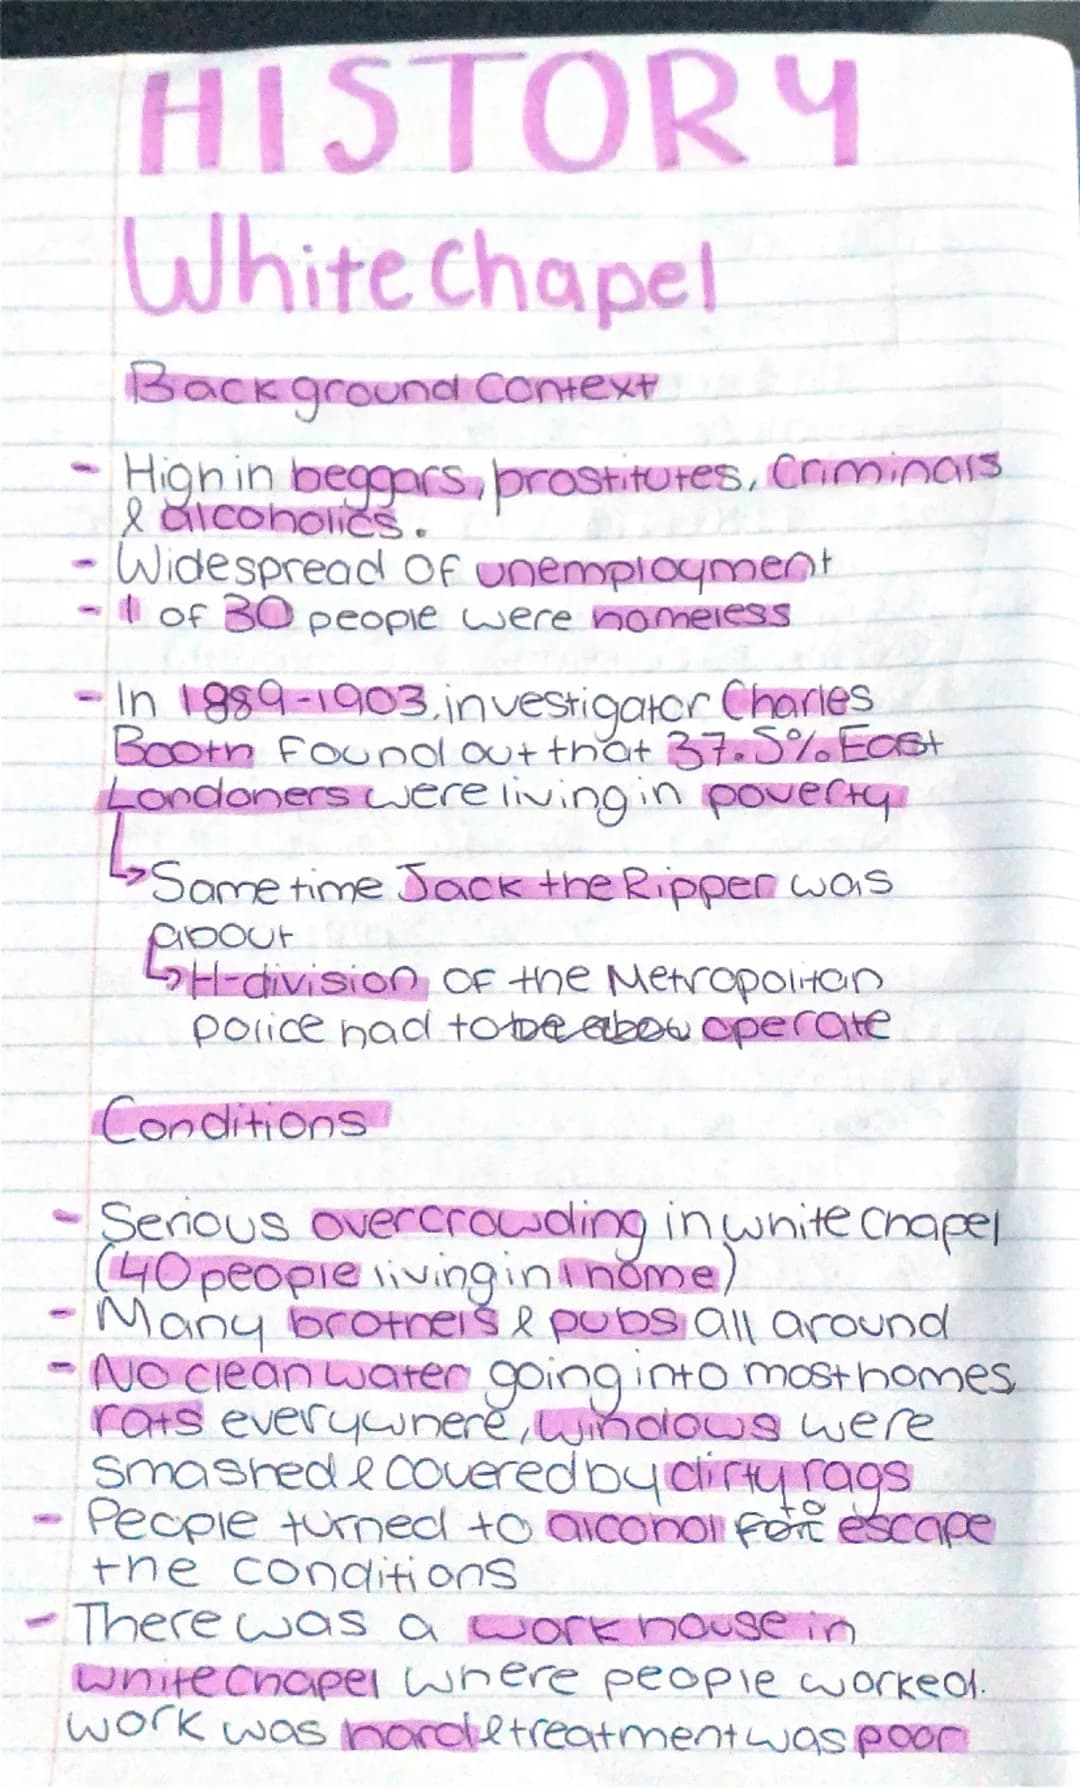 HISTORY
White Chapel
Background Context
- High in beggars, prostitutes, Criminals
& alcoholics.
- Widespread of unemployment
- 1 of 30 people were homeless
- In 1989-1903, investigator Charles
Booth Found out that 37.5% East
Londoners were living in poverty
↳ Same time Jack the Ripper was
about
↳ H-division OF the Metropolitan
police had to operate
Conditions
- Serious overcrowding in white chapel
(40 people living in 1 home)
- Many brothels & pubs all around
- No clean water going into most homes
rats everywhere, windows were
smashed & covered by dirty rags
- People turned to alcohol to escape
the conditions
- There was a work house in
white chapel where people worked.
work was hard & treatment was poor